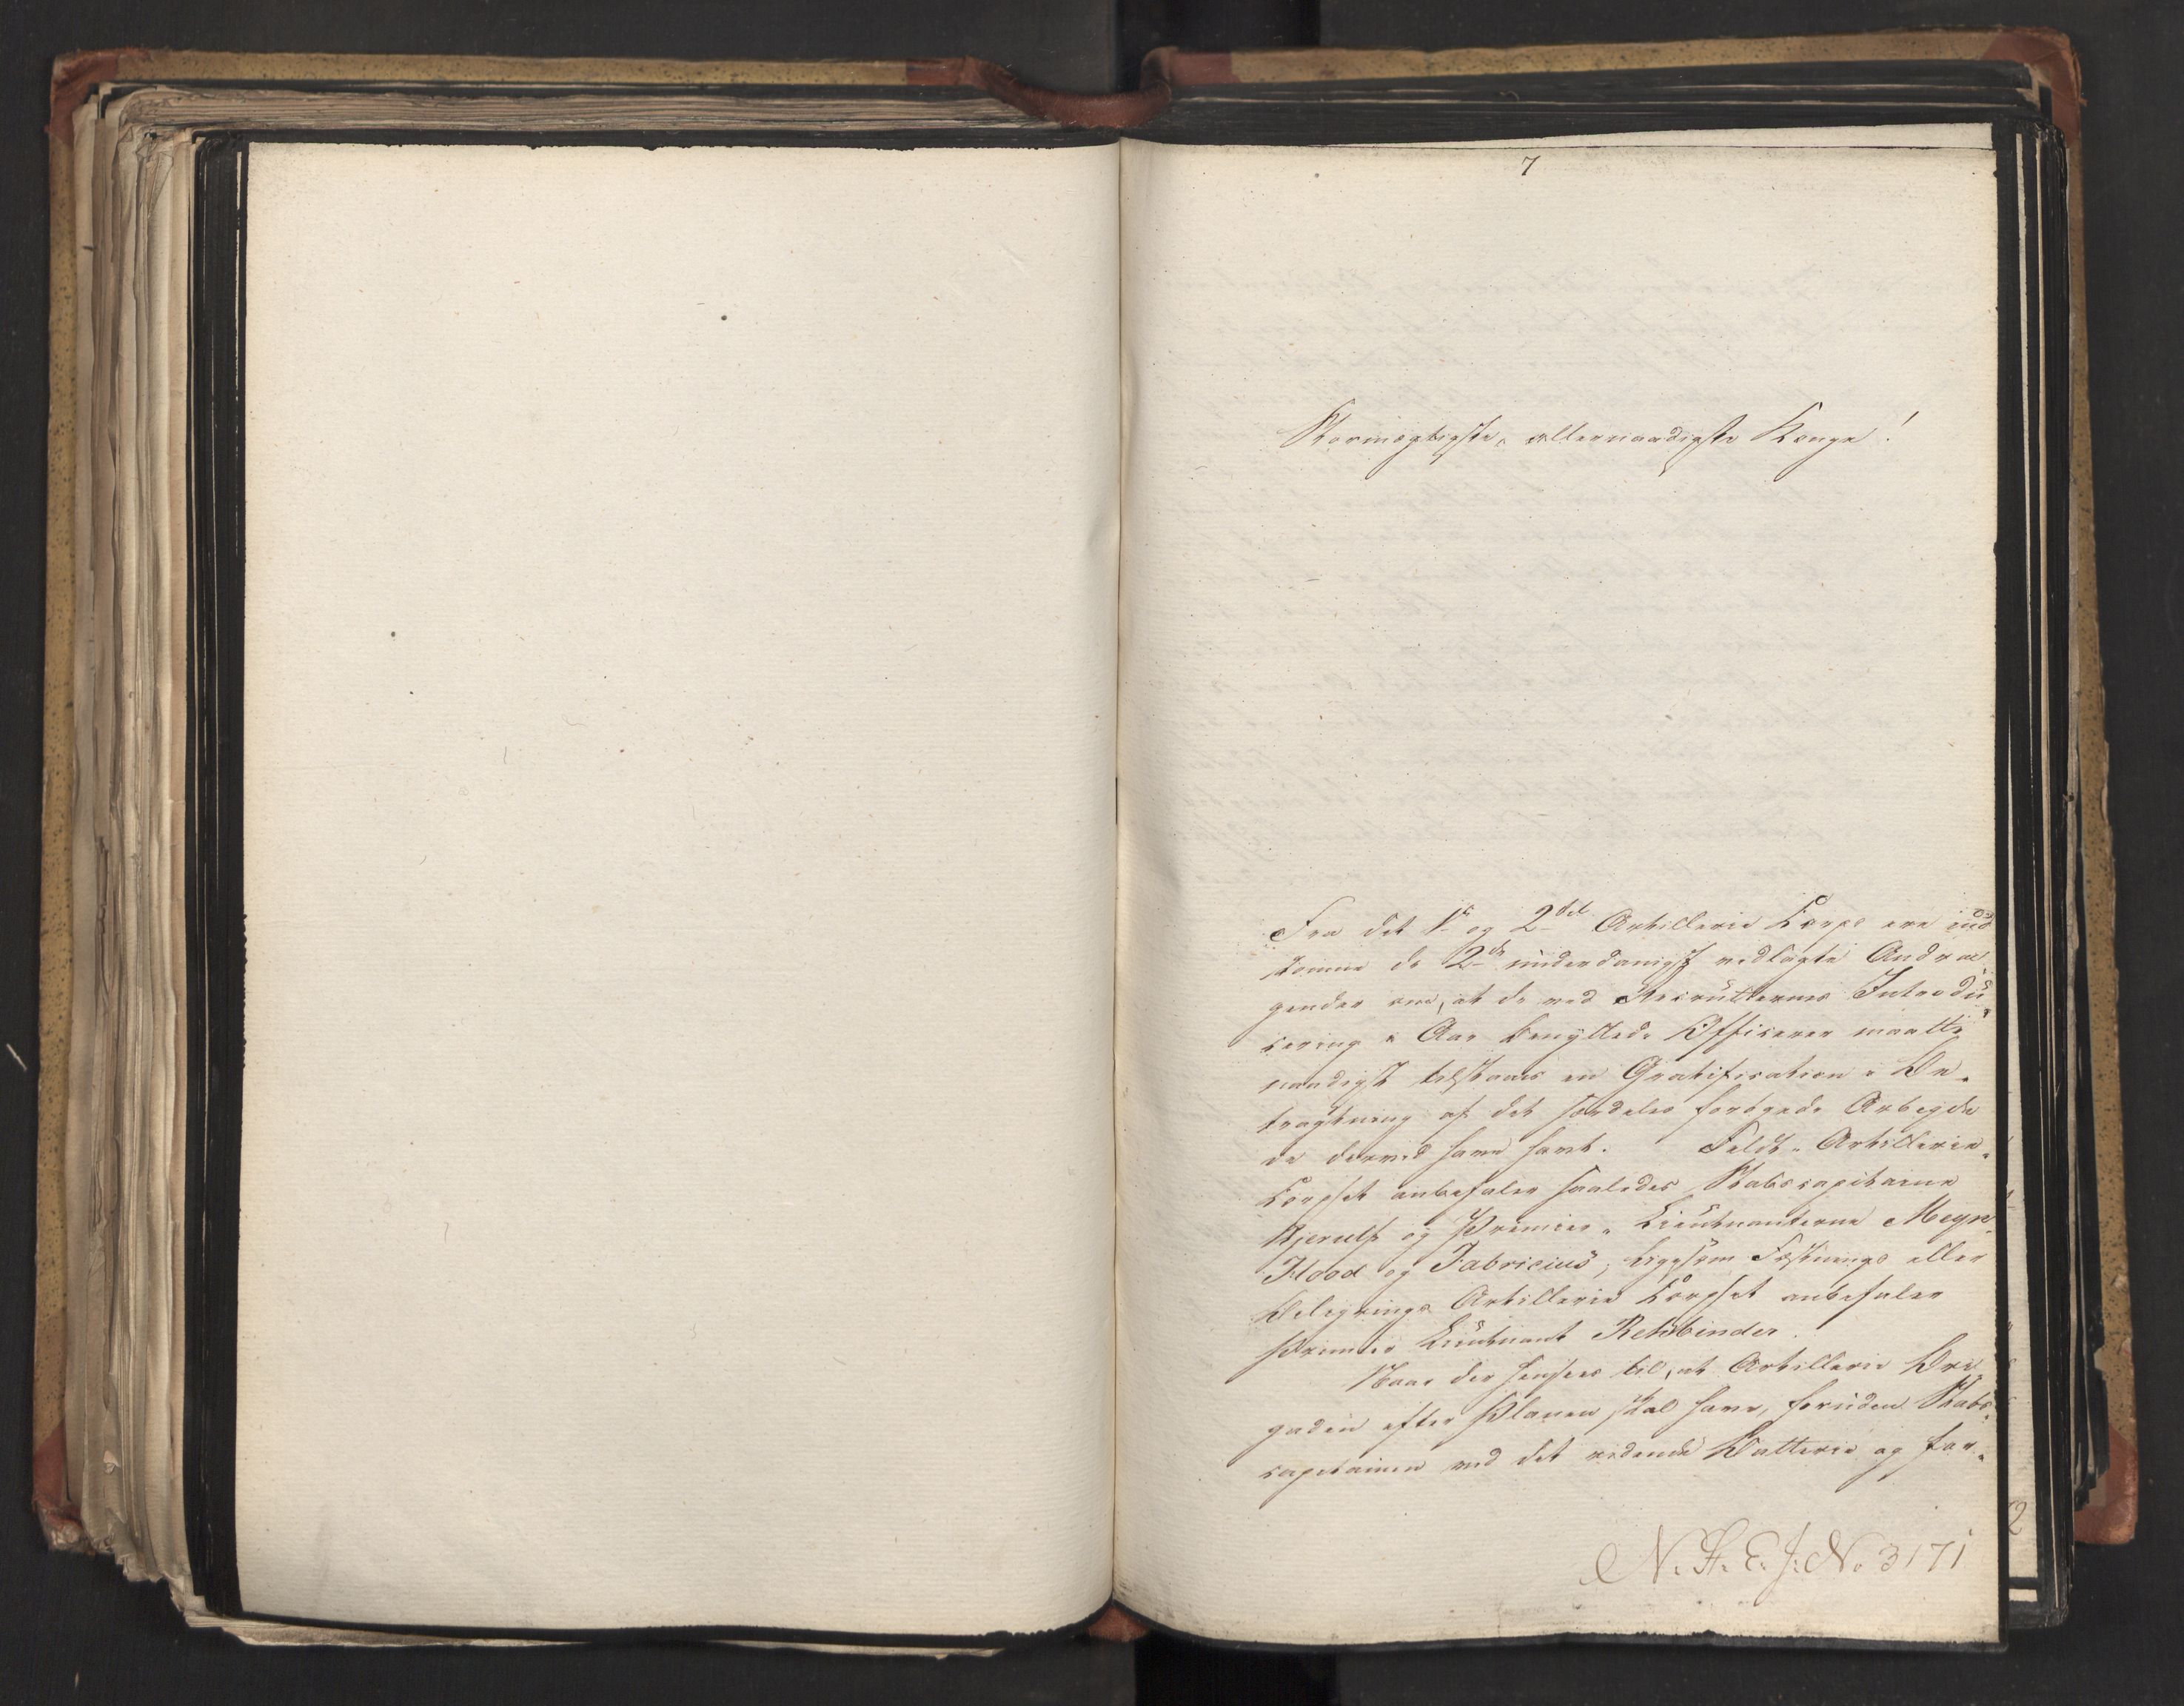 7
Stormægtigste, allernaadigste Konge!
Fra det 1ste og 2det Artillerie Corps ere ind
komne de 2de underdanigst vedlagte Andra
gender om, at de ved Recrutternes Introdu
cering i Aar benyttede Officerer maatte
naadigst tilstaaes en Gratification i Be-
tragtning af det særdeles forøgede Arbeyde
de derved have havt. Feldt-Artillerie-
Corpset anbefaler saaledes Stabscapitaine
Kjerulf og Premier-Lieutnanterne Meyn,
Flood og Fabricius, ligesom Fæstnings eller
Beleyrings Artillerie Corpset anbefaler
Premier Lieutnant Rehbinder.
Naar der henseës til, at Artillerie Bri
gaden efter Planen skal have, foruden Stabs-
capitainen ved det ridende Batterie og for-
N. St. E. J: No 3171
2